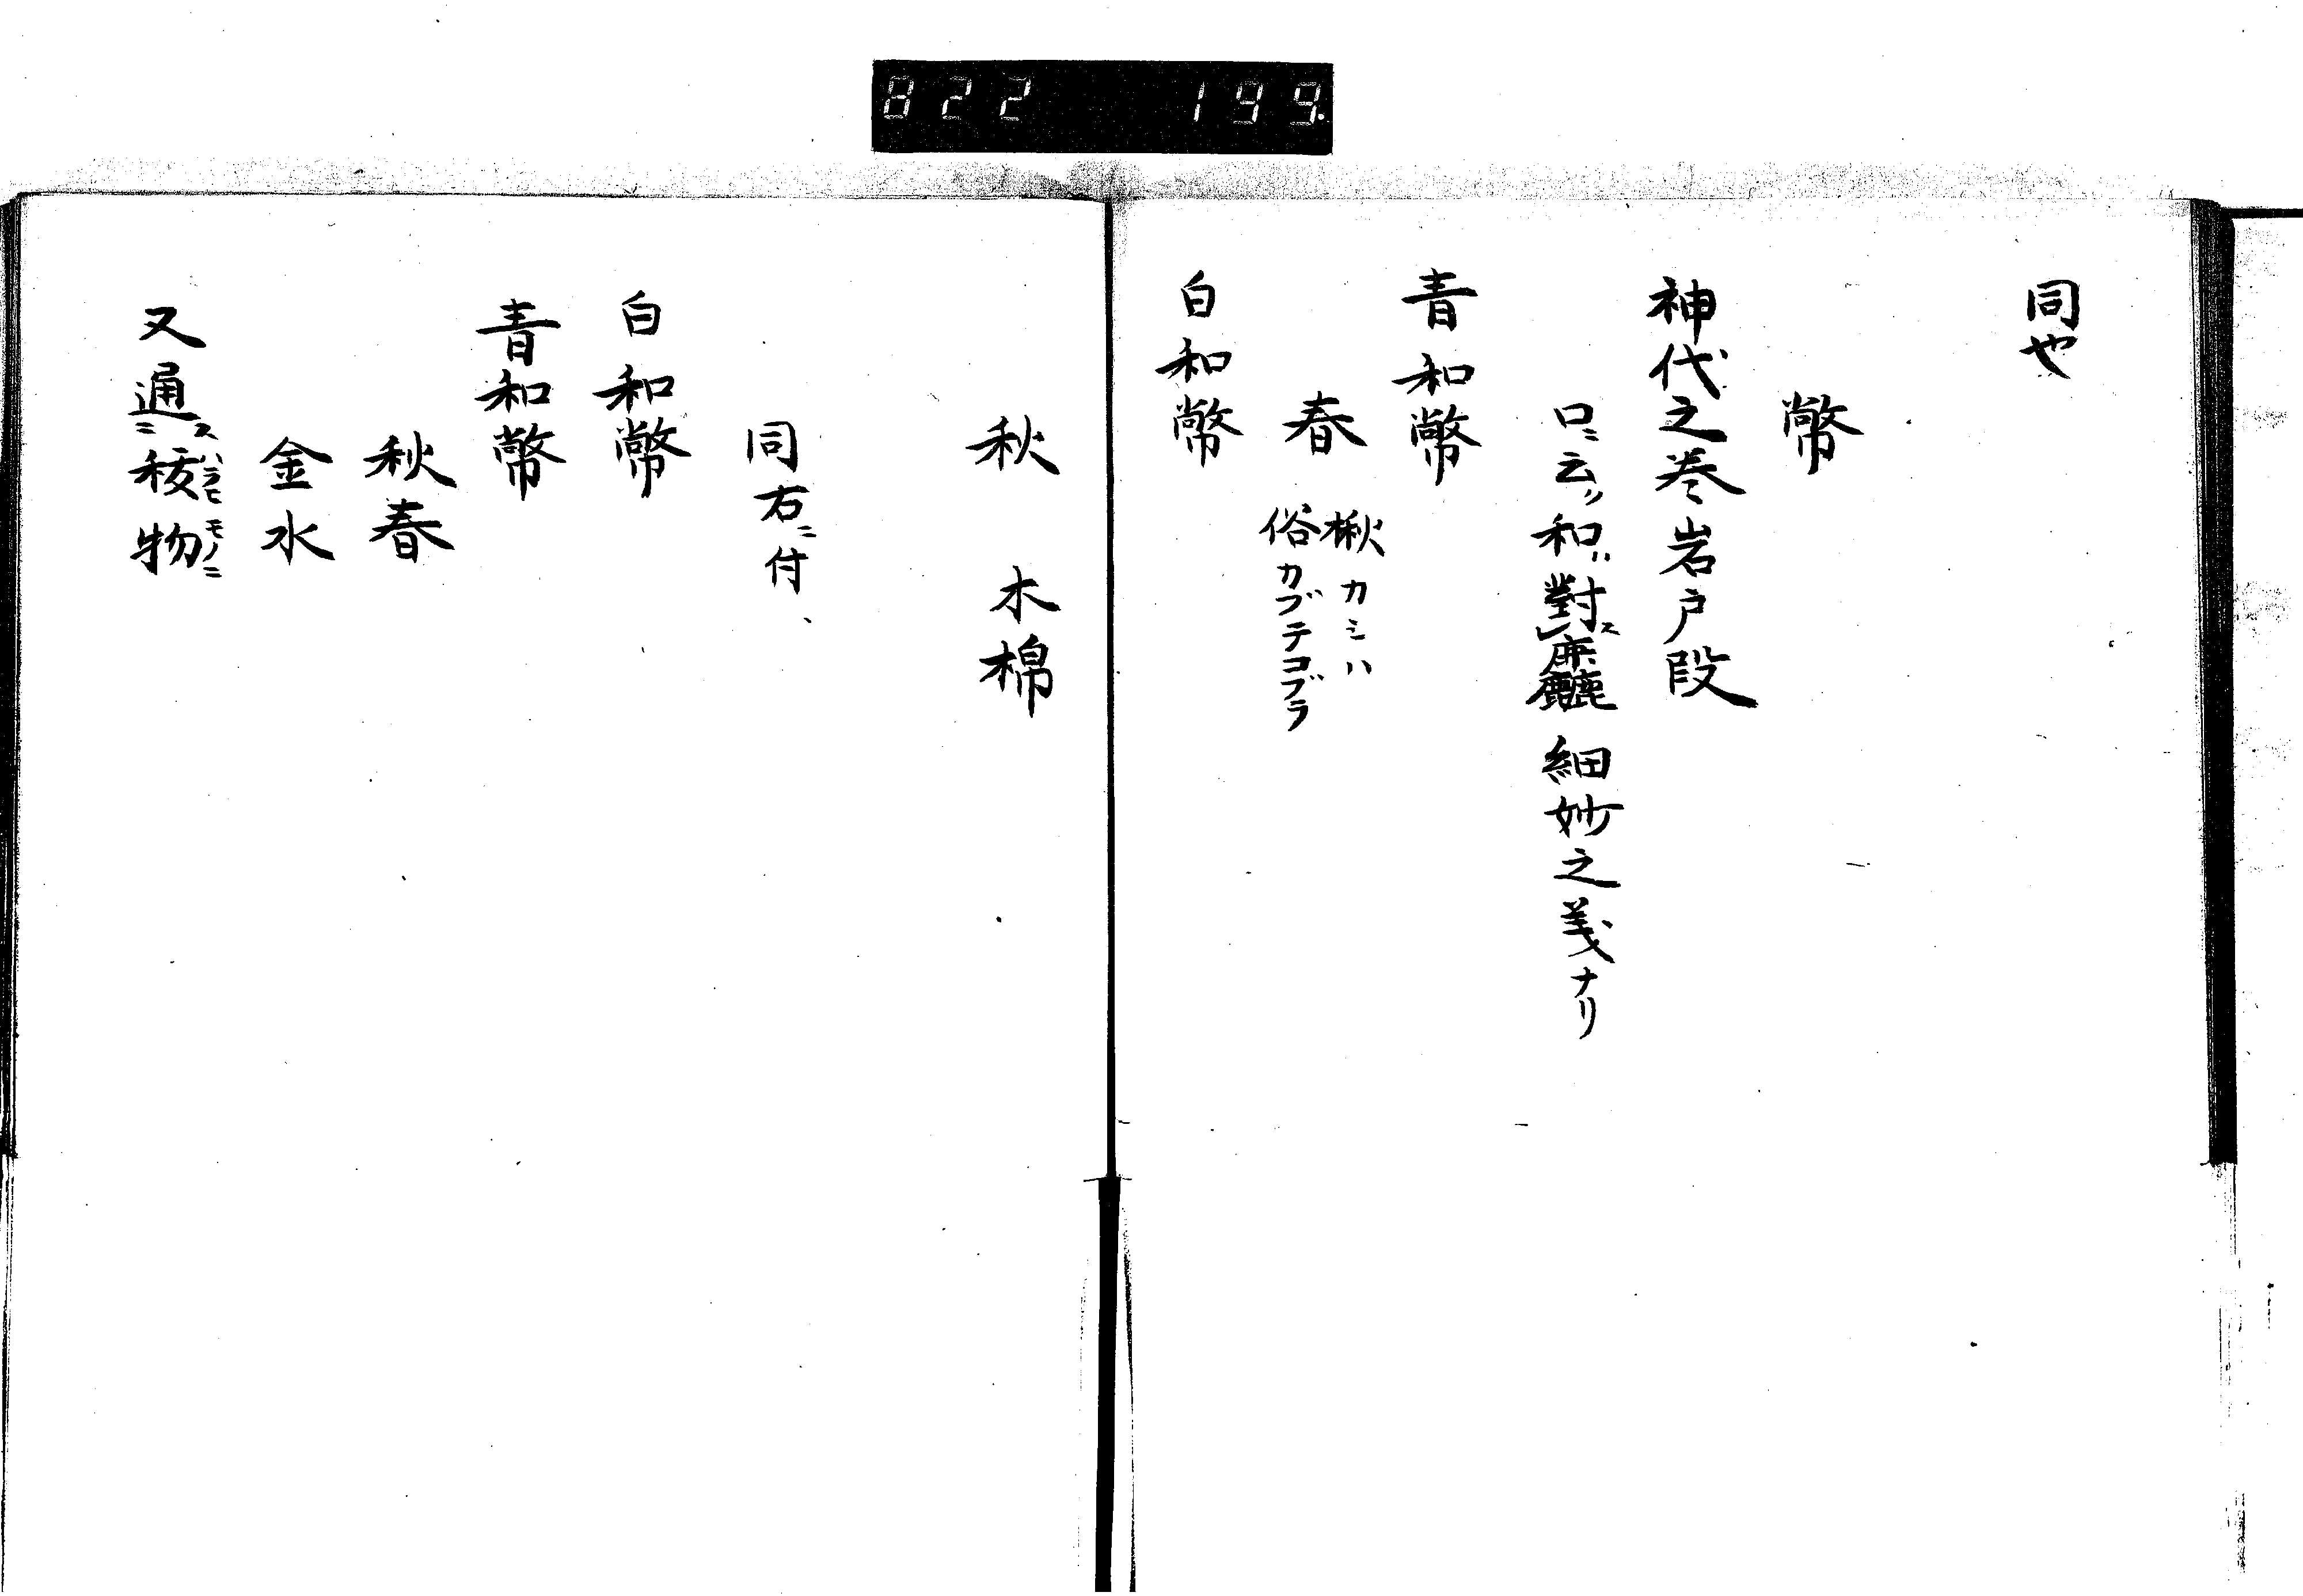 822 199.
同也
幣
神代之巻岩戸段
口ニ云ク和ハ對スレ麁麤細妙之義ナリ
青和幣
春 楸カシハ
俗カブテコブラ
白和幣
秋 木棉
同右ニ付、
白和幣
青和幣
秋春
金水
又通ス二祓ハラヒ物モノニ